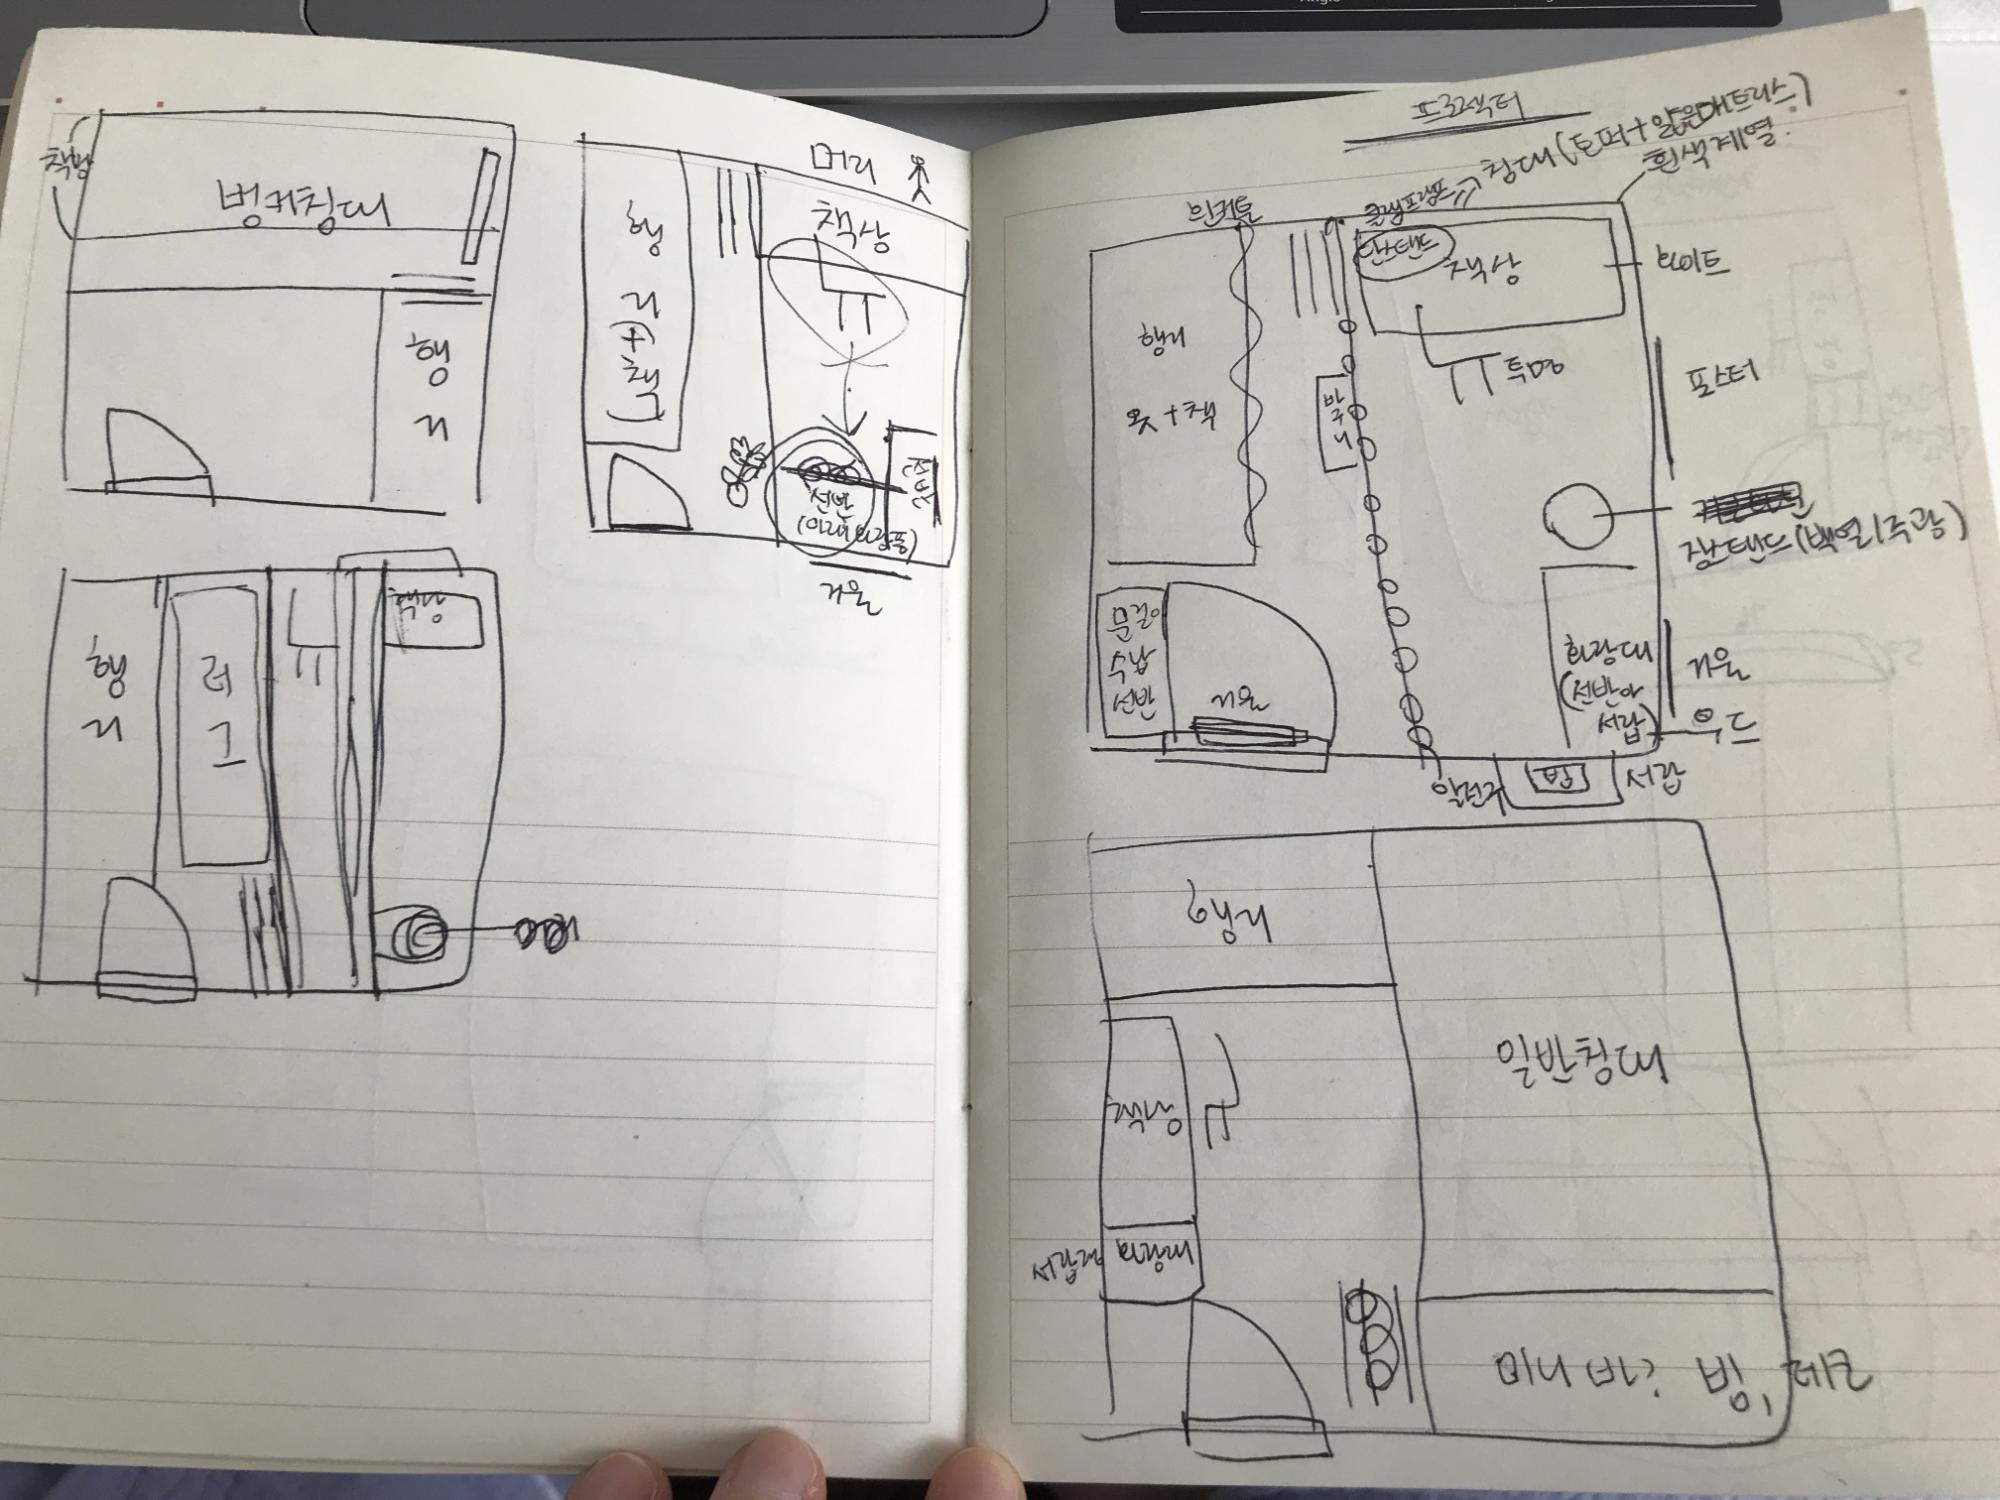 책상
벙커침대
행
거
머리
책상
행
거
(+책)
선반
(아래 화장품)
거울
행
거
러
그
책상
프로젝터
침대 (토퍼+얇은매트리스)
흰색계열.
흰커튼
클램프램프
단스탠드
책상
화이트
행거
옷+책
바구니
투명
포스터
장스탠드 (백열/주광)
문걸이
수납
선반
거울
화장대
(선반아
서랍)
거울
우드
알전구
서랍
행거
일반침대
책상
서랍장
화장대
미니 바? 빔,